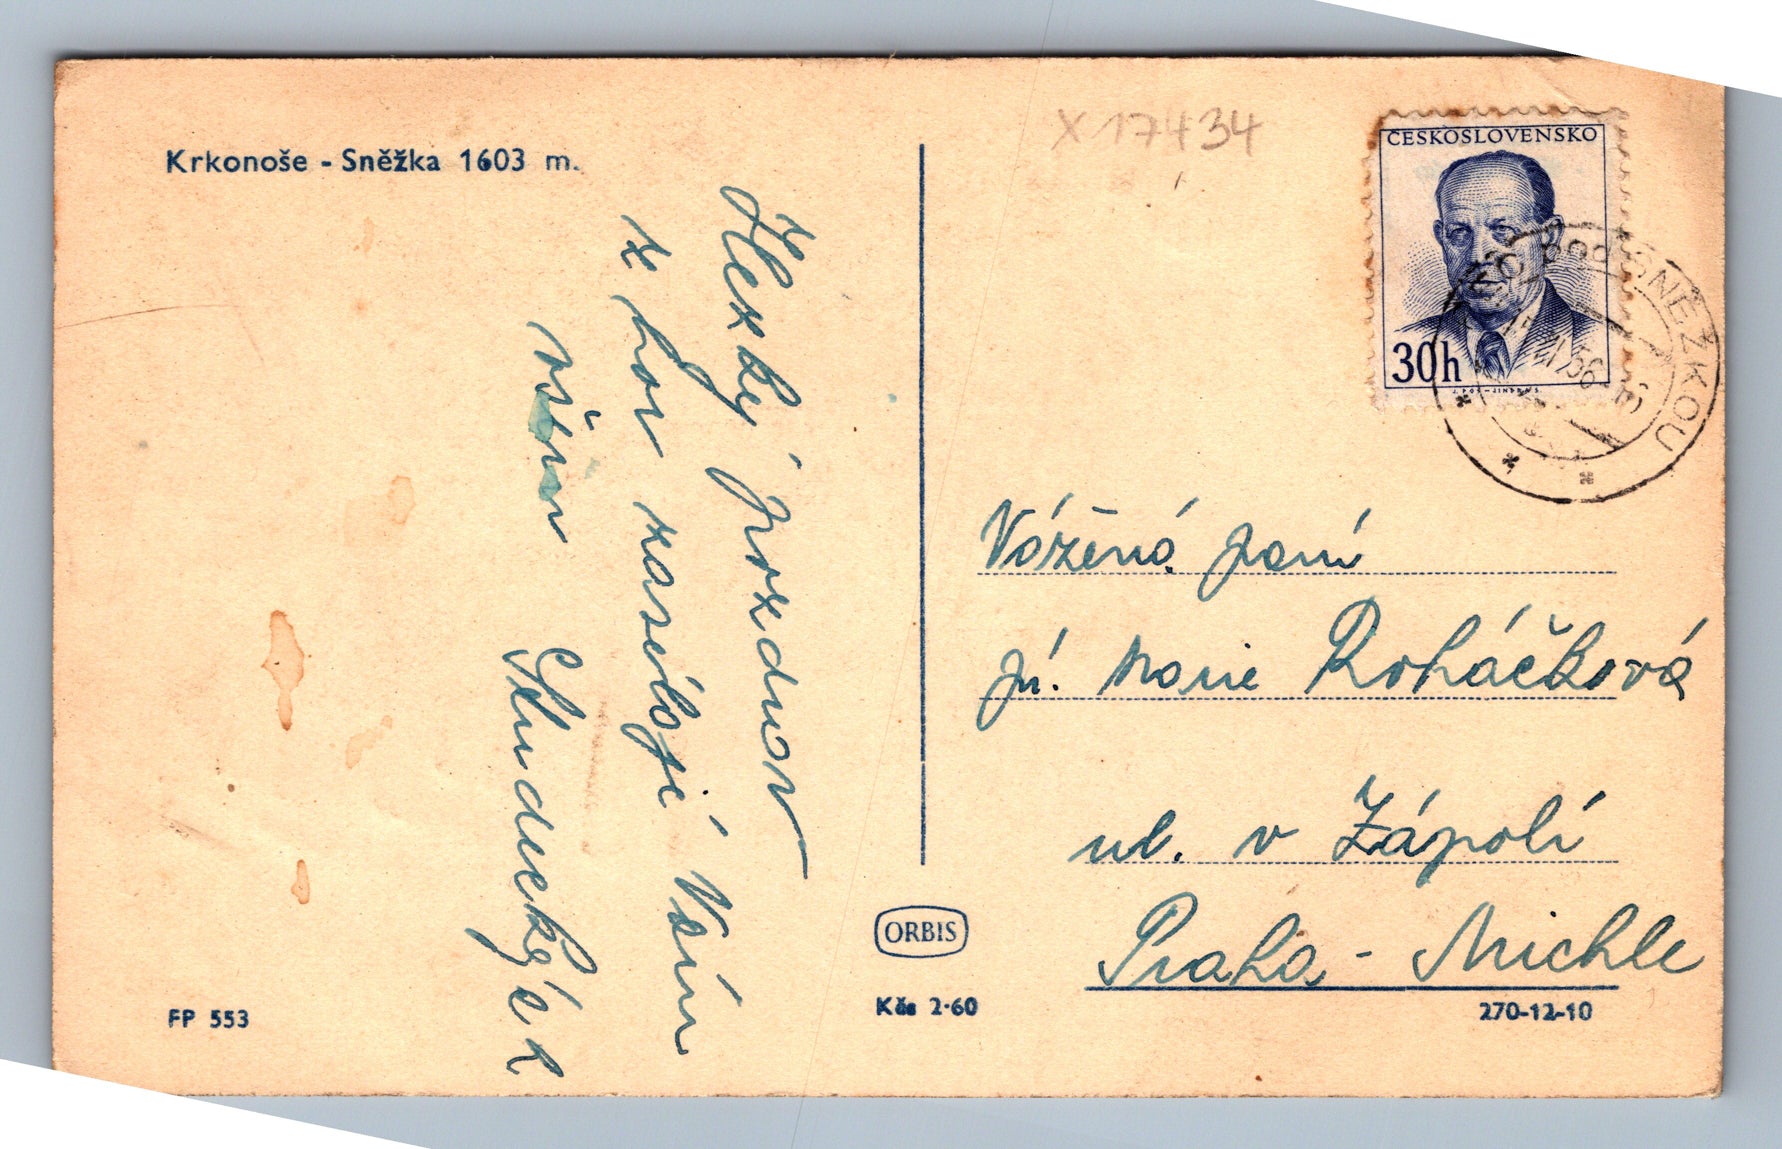 Krkonoše - Sněžka 1603 m.
X 17434
ČESKOSLOVENSKO
30h
POD SNĚŽKOU
56
Hezký pozdrav
z hor zasílají Vám
všem
Vážená paní
pí. Marie Roháčková
ul. v Zápolí
Praha - Michle
ORBIS
FP 553
Kčs 2·60
270-12-10